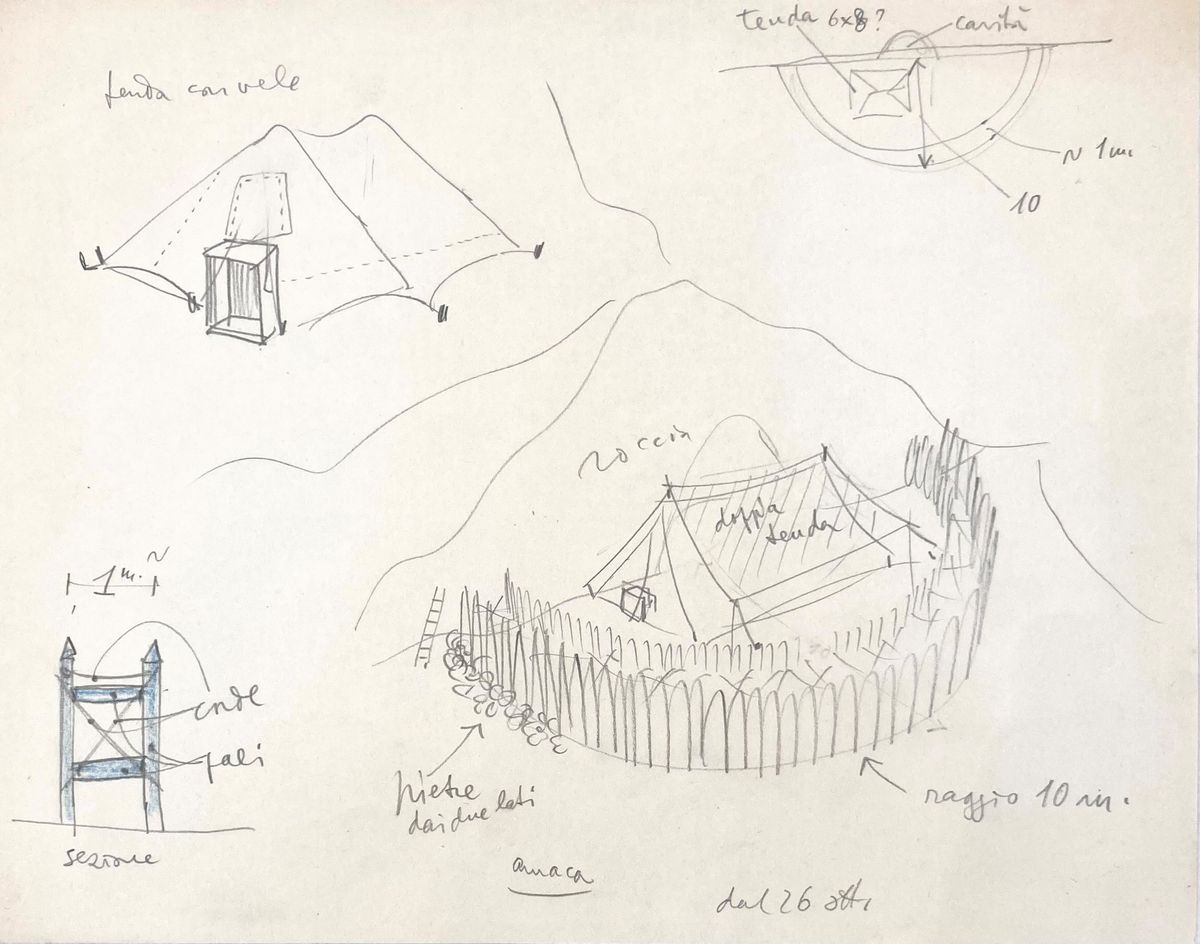 tenda 6x8?
cavità
tenda con vele
~ 1 m.
10
roccia
doppia
tenda
~
1 m.
corde
pali
pietre
dai due lati
raggio 10 m.
sezione
amaca
dal 26 ott.